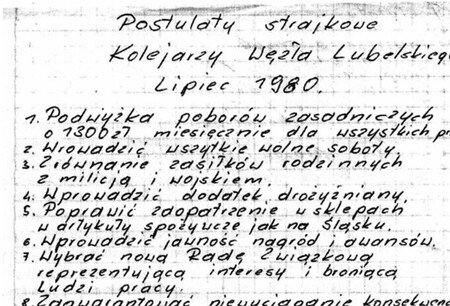 Postulaty strajkowe
Kolejarzy Węzła Lubelskiego
Lipiec 1980.
1. Podwyżka poborów zasadniczych
o 1300 zł miesięcznie dla wszystkich
2. Wrowadzić wszytkie wolne soboty.
3. Zrównanie zasiłków rodzinnych
z milicją i wojskiem.
4. Wprowadzić dodatek drożyźniany.
5. Poprawić zaopatrzenie w sklepach
w artykuły spożywcze jak na Śląsku.
6. Wprowadzić jawność nagród i awansów.
7. Wybrać nową Radę Związkową
reprezentującą interesy i broniącą
Ludzi pracy.
8. Zagwarantować niewyciąganie